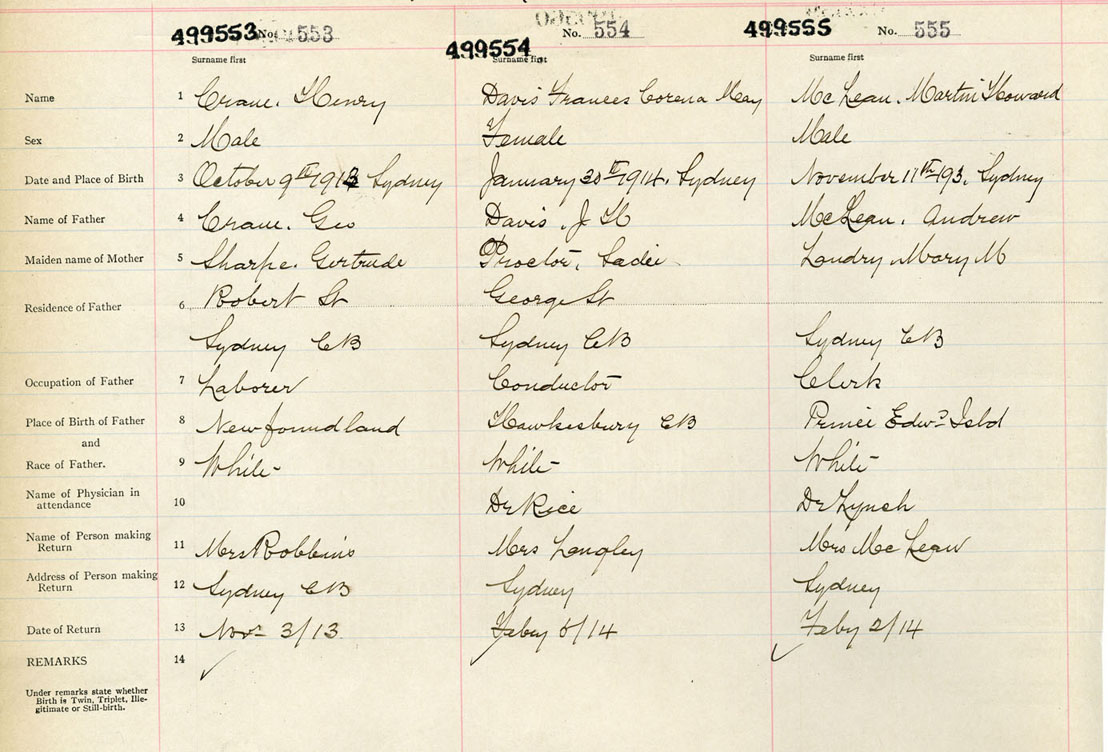 499553 No. 553 499554 No. 554 499555 No. 555
Surname first Surname first Surname first
Name 1 Crane. Henry Davis Frances Corena May McLean. Martin Howard
Sex 2 Male Female Male
Date and Place of Birth 3 October 9th 1913 Sydney January 30th 1914. Sydney November 11th 193. Sydney
Name of Father 4 Crane. Geo Davis. J H McLean. Andrew
Maiden name of Mother 5 Sharpe. Gertrude Proctor, Sadie Landry, Mary M
Residence of Father 6 Robert St George St
Sydney CB Sydney CB Sydney CB
Occupation of Father 7 Laborer Conductor Clerk
Place of Birth of Father 8 Newfoundland Hawkesbury CB Prince Edwd Isld
and
Race of Father. 9 White White White
Name of Physician in
attendance 10 Dr Rice Dr Lynch
Name of Person making
Return 11 Mrs Robbins Mrs Langley Mrs McLean
Address of Person making
Return 12 Sydney CB Sydney Sydney
Date of Return 13 Novr 3/13 Feby /14 Feby 2/14
REMARKS 14
Under remarks state whether
Birth is Twin, Triplet, Ille-
gitimate or Still-birth.